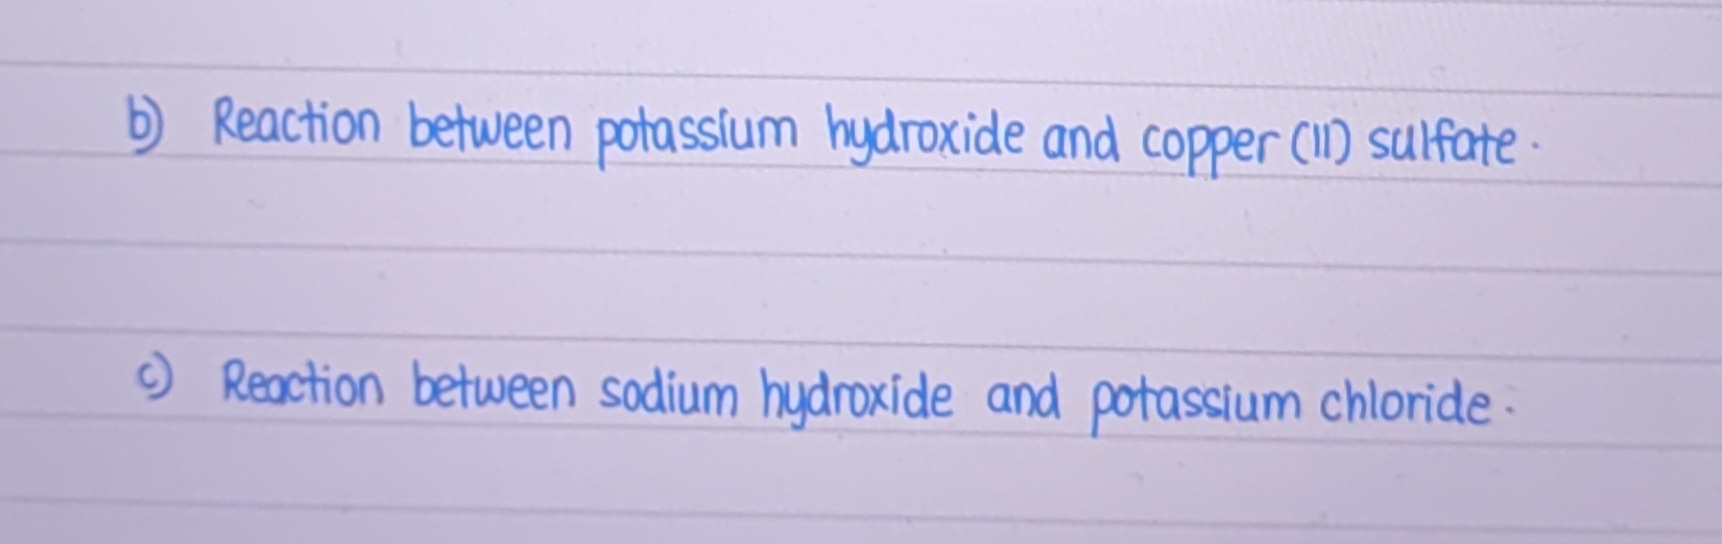 b) Reaction between potassium hydroxide and copper (II) sulfate.
c) Reaction between sodium hydroxide and potassium chloride.